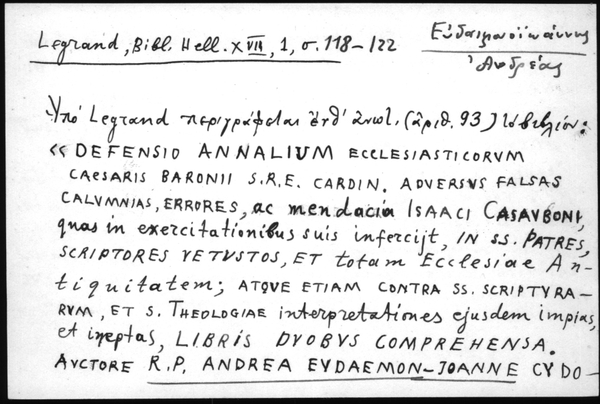 Legrand, Bibl. Hell. XVII, 1, σ. 118-122
Εὐδαιμονοϊωάννης
Ἀνδρέας
Ὑπό Legrand περιγράφεται ἔνθ' ἀνωτ. (ἀριθ. 93) τό βιβλίον:
« DEFENSIO ANNALIUM ECCLESIASTICORVM
CAESARIS BARONII S.R.E. CARDIN. ADVERSVS FALSAS
CALVMNIAS, ERRORES, ac mendacia ISAACI CASAVBONI,
quas in exercitationibus suis infercijt, IN SS. PATRES,
SCRIPTORES VETVSTOS, ET totam Ecclesiae An-
tiquitatem; ATQVE ETIAM CONTRA SS. SCRIPTVRA-
RVM, ET S. THEOLOGIAE interpretationes ejusdem impias,
et ineptas, LIBRIS DVOBVS COMPREHENSA.
AVCTORE R.P. ANDREA EVDAEMON-JOANNE CYDO-